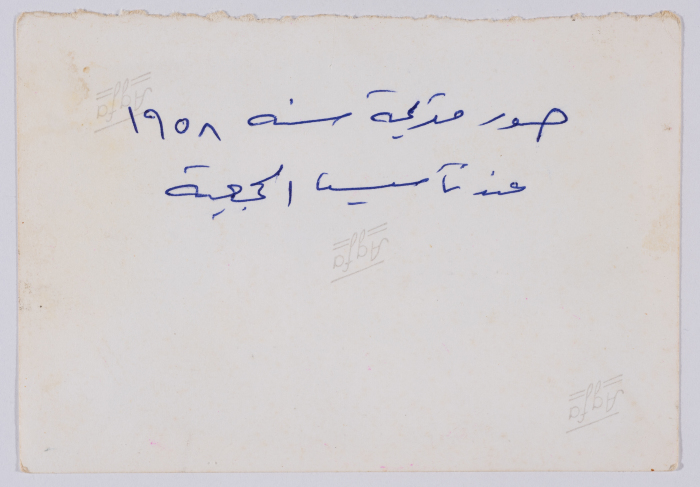 صور قديمة سنه ١٩٥٨
عند تأسيس الجمعية
Agfa
Agfa
Agfa